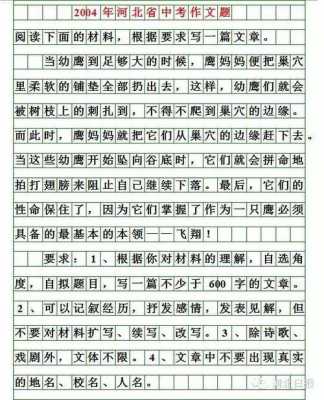 2004年河北省中考作文题
阅读下面的材料，根据要求写一篇文章。
当幼鹰到足够大的时候，鹰妈妈便把巢穴
里柔软的铺垫全部扔出去，这样，幼鹰们就会
被树枝上的刺扎到，不得不爬到巢穴的边缘。
而此时，鹰妈妈就把它们从巢穴的边缘赶下去。
当这些幼鹰开始坠向谷底时，它们就会拼命地
拍打翅膀来阻止自己继续下落。最后，它们的
性命保住了，因为它们掌握了作为一只鹰必须
具备的最基本的本领——飞翔！
要求：1、根据你对材料的理解，自选角
度，自拟题目，写一篇不少于600字的文章。
2、可以记叙经历，抒发感情，发表见解，但
不要对材料扩写、续写、改写。3、除诗歌、
戏剧外，文体不限。4、文章中不要出现真实
的地名、校名、人名。